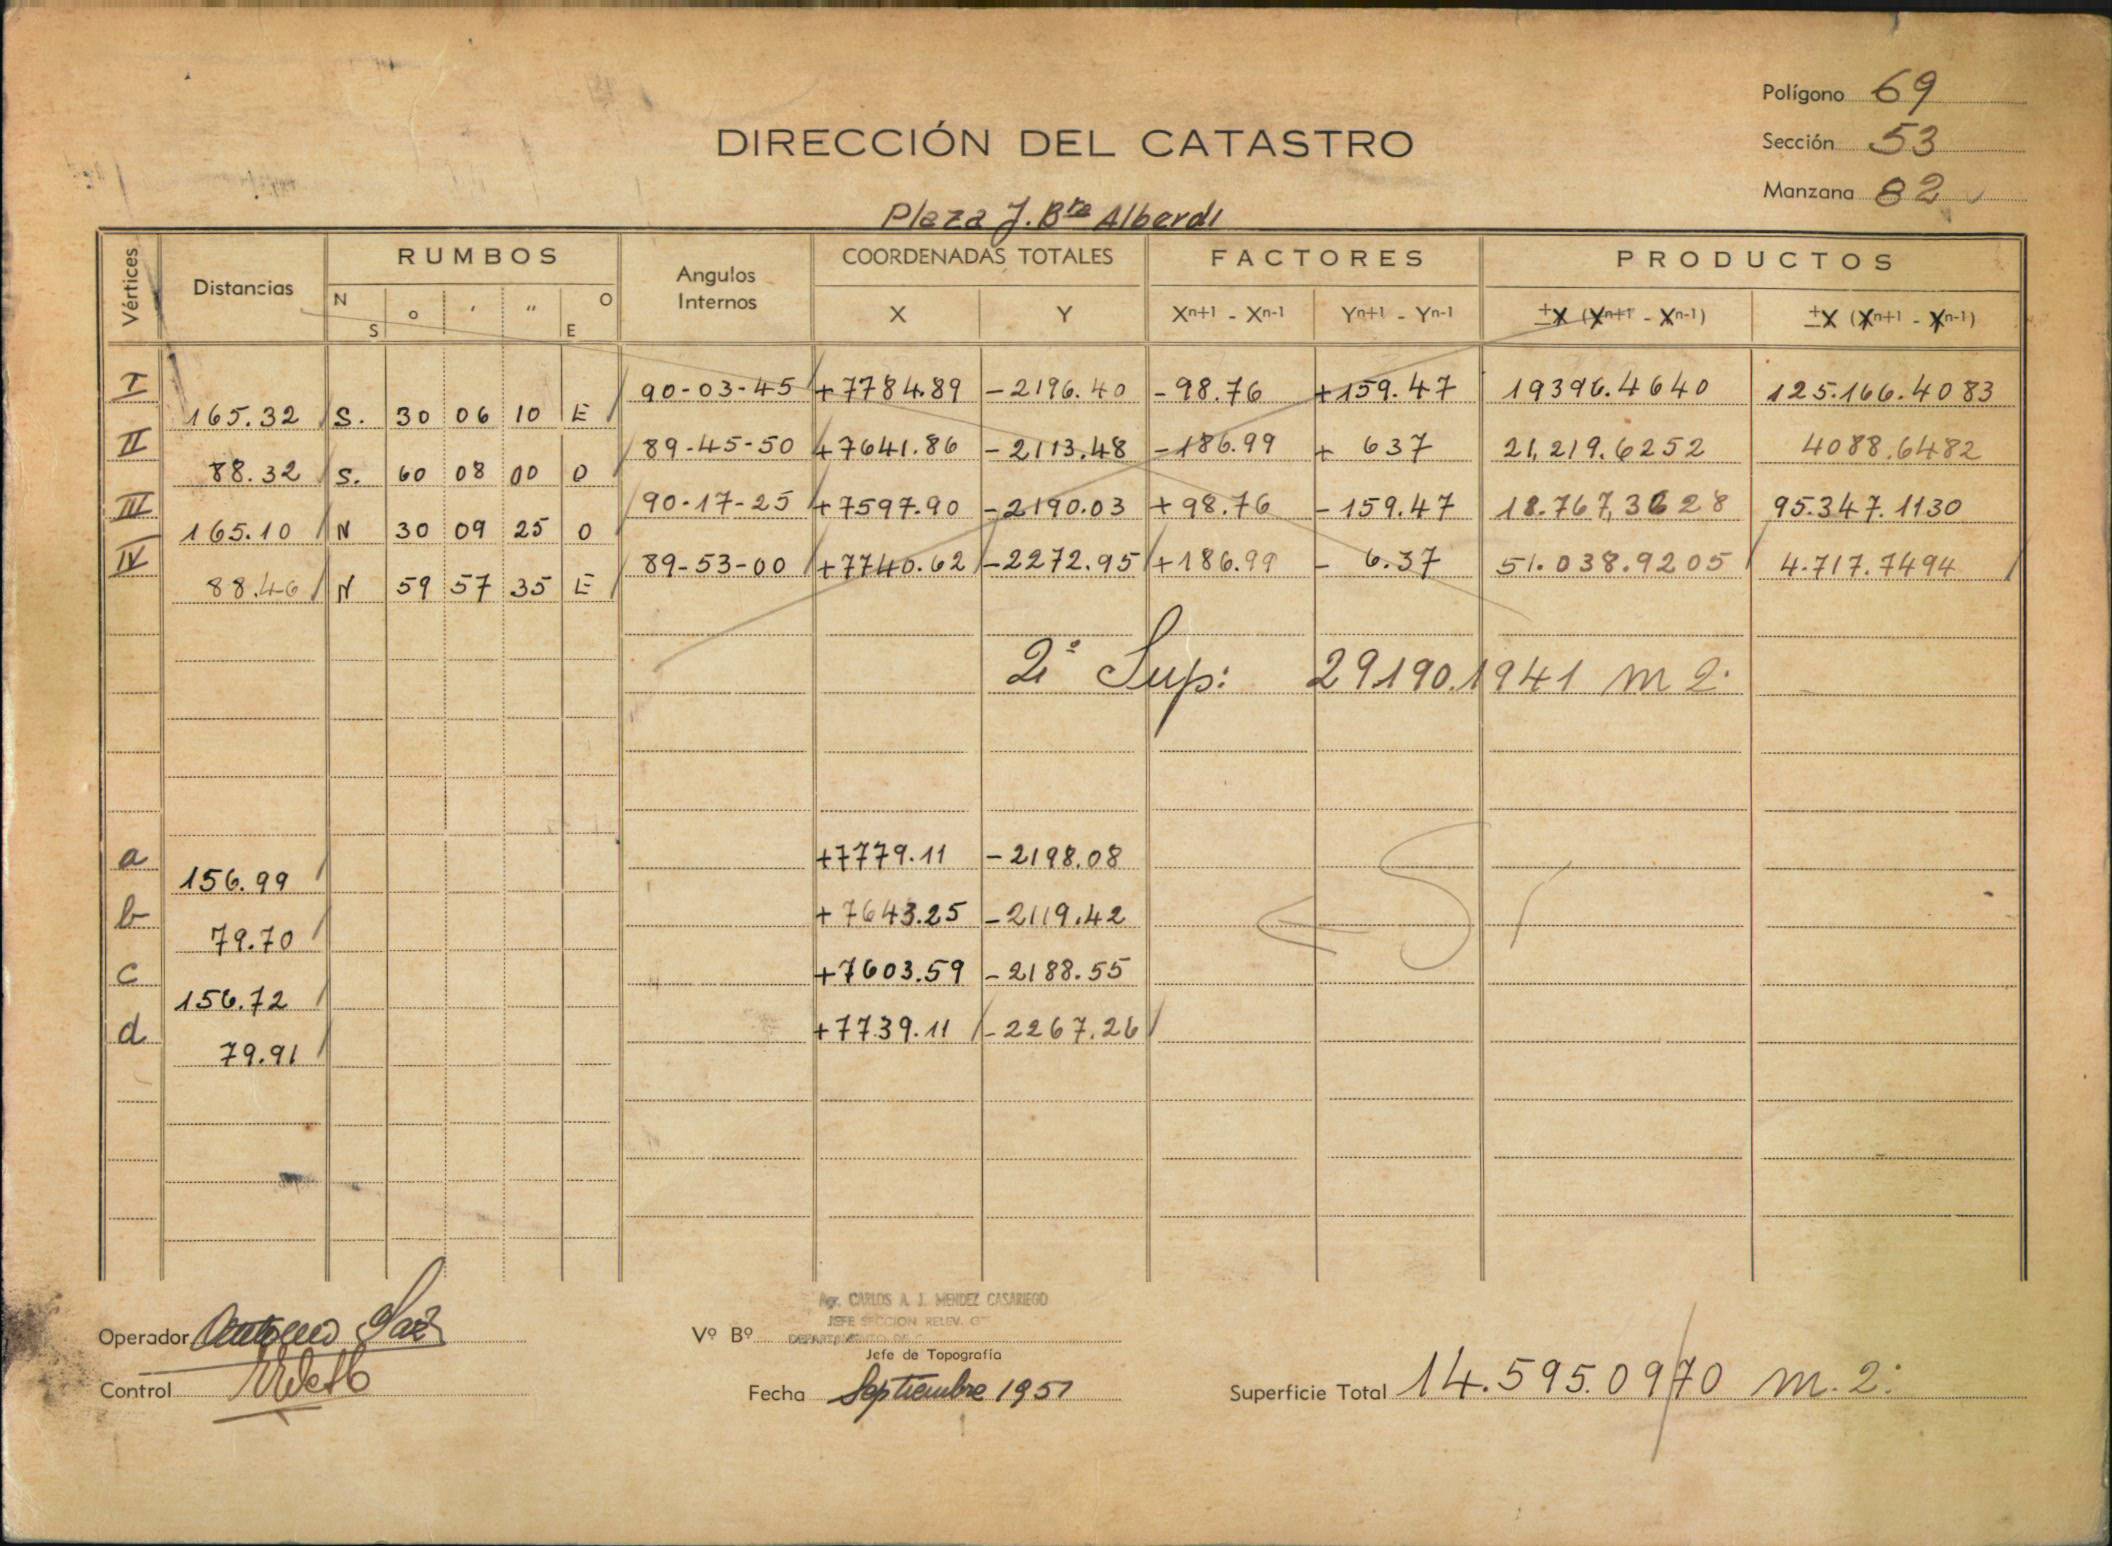 Polígono 69
DIRECCIÓN DEL CATASTRO
Sección 53
Manzana 82
Plaza J. Bta Alberdi
Vértices Distancias RUMBOS Angulos Internos COORDENADAS TOTALES FACTORES PRODUCTOS
N S o ' " O E X Y Xn+1 - Xn-1 Yn+1 - Yn-1 ±X (Xn+1 - Xn-1) ±X (Xn+1 - Xn-1)
I 90-03-45 +7784.89 -2196.40 -98.76 +159.47 19396.4640 125.166.4083
165.32 S. 30 06 10 E
II 89-45-50 +7641.86 -2113.48 -186.99 + 637 21,219.6252 4088.6482
88.32 S. 60 08 00 O
III 90-17-25 +7597.90 -2190.03 +98.76 -159.47 18.767,3628 95.347.1130
165.10 N 30 09 25 O
IV 89-53-00 +7740.62 -2272.95 +186.99 - 6.37 51.038.9205 4.717.7494
88.46 N 59 57 35 E
2º Sup: 29190.1941 m 2.
a +7779.11 -2198.08
156.99
b +7643.25 -2119.42
79.70
c +7603.59 -2188.55
156.72
d +7739.11 -2267.26
79.91
Agr. CARLOS A. J. MENDEZ CASARIEGO
JEFE SECCION RELEV. G
DEPARTAMENTO DE
Operador Antonio
Vº Bº
Jefe de Topografía
Control
Fecha Septiembre 1951
Superficie Total 14.595.0970 m. 2.